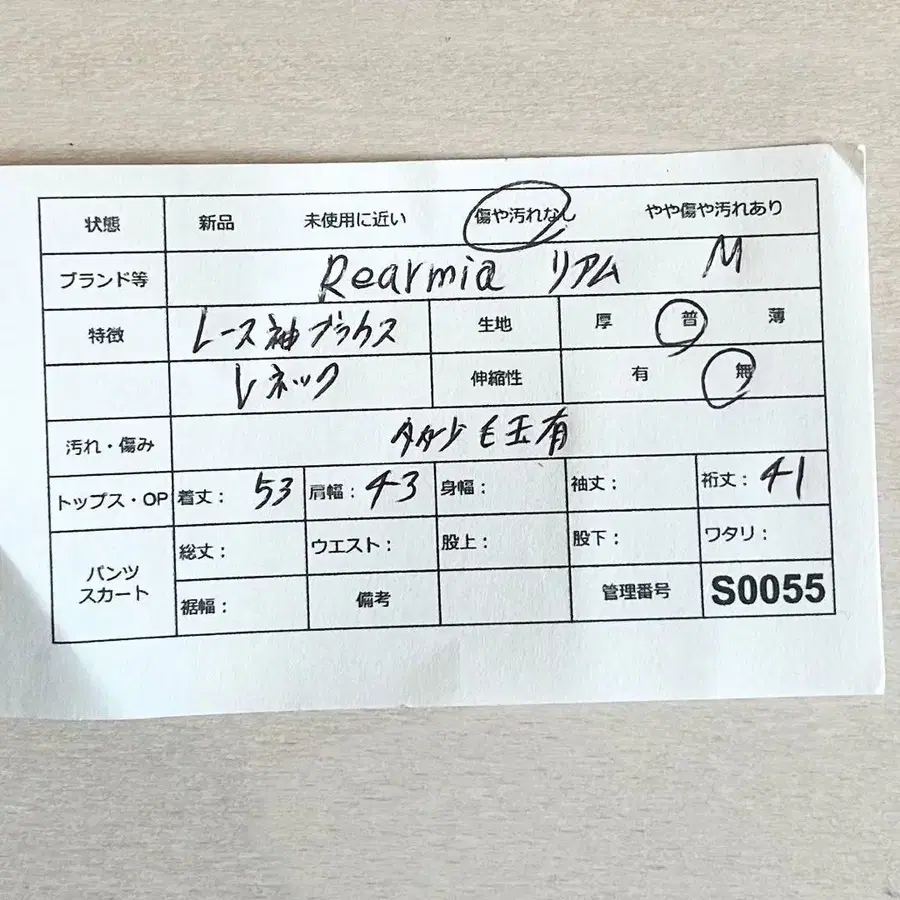 状態 新品 未使用に近い 傷や汚れなし やや傷や汚れあり
ブランド等 Rearmia リアム M
特徴 レース袖ブラウス 生地 厚 普 薄
Vネック 伸縮性 有 無
汚れ・傷み 毛玉有
トップス・OP 着丈: 53 肩幅: 43 身幅: 袖丈: 裄丈: 41
パンツ スカート 総丈: ウエスト: 股上: 股下: ワタリ:
裾幅: 備考 管理番号 S0055